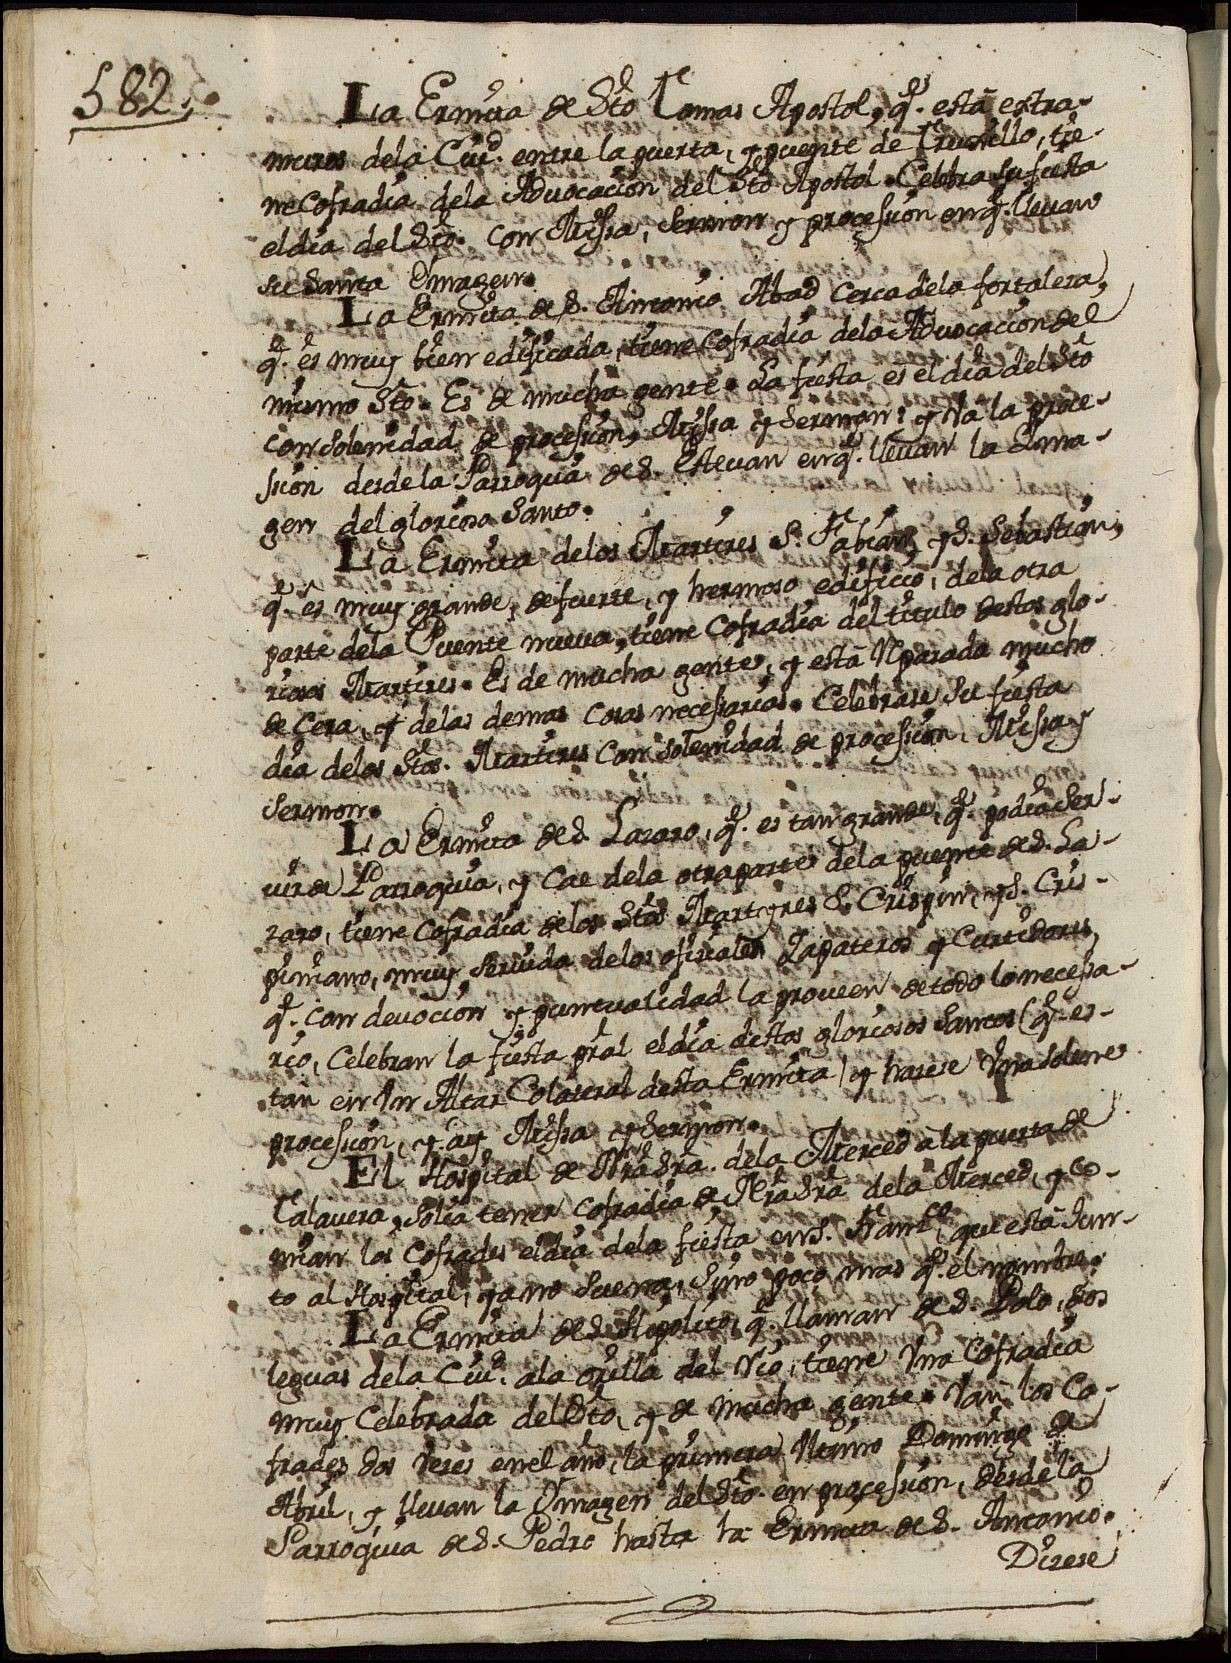 582.
La Ermita de Sto Tomas Apostol, q̃. está extra-
muros dela Ciud. entre la puerta, y puente de Truxillo, tie-
ne Cofradía dela Advocacion del Sto Apostol. Celebra su fiesta
el día del Sto. con Missa, Sermon y procesión en q̃. llevan
su Santa Ymagen.
La Ermita de S. Antonio Abad cerca dela fortaleza,
q̃. es muy bien edificada, tiene Cofradía dela Advocacion del
mismo Sto. Es de mucha gente. La fiesta es el día del Sto
con solemnidad de procesión, Missa y Sermon: y va la proce-
sión desde la Parroquia de S. Estevan en q̃. llevan la Ima-
gen del glorioso Santo.
La Ermita delos Martires S. Fabián, y S. Sebastián,
q̃. es muy grande, de fuerte, y hermoso edificio, dela otra
parte dela Puente nueva, tiene Cofradía del título destos glo-
riosos Martires. Es de mucha gente, y está reparada mucho
de Cera, y delas demas cosas necessarias. Celebrase su fiesta
día delos Stos. Martires con solemnidad de procesión, Missa y
Sermon.
La Ermita de S. Lazaro, q̃. es tan grande, q̃. podía ser-
vir de Parroquia, y cae dela otra parte dela puente de S. La-
zaro, tiene Cofradía delos Stos Martyres S. Crispin, y S. Cris-
piniano, muy servida delos oficiales Zapateros y Curtidores,
q̃. con devoción y puntualidad la proveen de todo lo necessa-
rio, Celebran la fiesta pral el día destos gloriosos Santos (q̃. es-
tan en Vn Altar Colateral desta Ermita) y hacese Vna solene
procesión, y ay Missa y Sermon.
El Hospital de Nrã Srã. dela Merced a la puerta de
Talavera, solía tener Cofradía de Nrã Srã dela Merced, y co-
mían los Cofrades el día dela fiesta en S. Franco, que está Jun-
to al Hospital, ya no suena, sino poco mas q̃. el nombre.
La Ermita de S. Hipolito, q̃. llaman de S. Polo, dos
leguas dela Ciud. ala orilla del río, tiene Vna Cofradía
muy Celebrada del Sto, y de mucha gente. Van los Co-
frades dos veces en el año, la primera Vltimo Domingo de
Abril, y llevan la Ymagen del Sto. en procesión, desde la
Parroquia de S. Pedro hasta la Ermita de S. Antonio.
Dicese